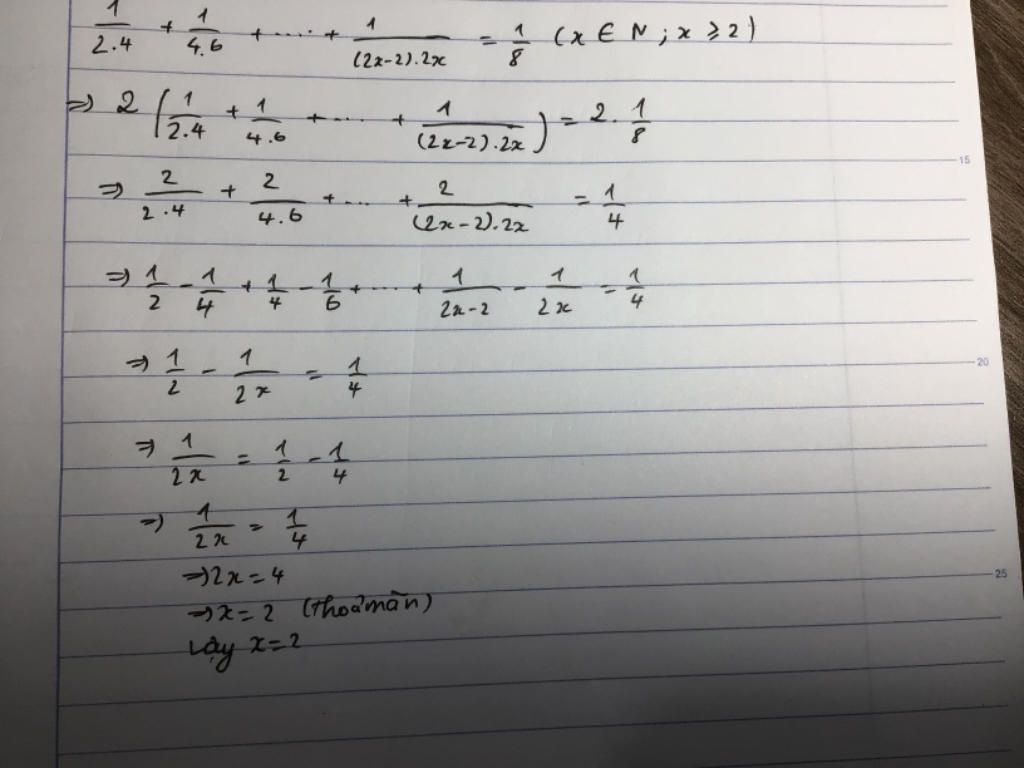 1/2.4 + 1/4.6 + .... + 1/(2x-2).2x = 1/8 (x ∈ N ; x ⩾ 2)
⇒ 2 (1/2.4 + 1/4.6 + .... + 1/(2x-2).2x) = 2. 1/8
15
⇒ 2/2.4 + 2/4.6 + ... + 2/(2x-2).2x = 1/4
⇒ 1/2 - 1/4 + 1/4 - 1/6 + .... + 1/2x-2 - 1/2x = 1/4
⇒ 1/2 - 1/2x = 1/4
20
⇒ 1/2x = 1/2 - 1/4
⇒ 1/2x = 1/4
⇒ 2x = 4
25
⇒ x = 2 (thoả mãn)
Vậy x = 2